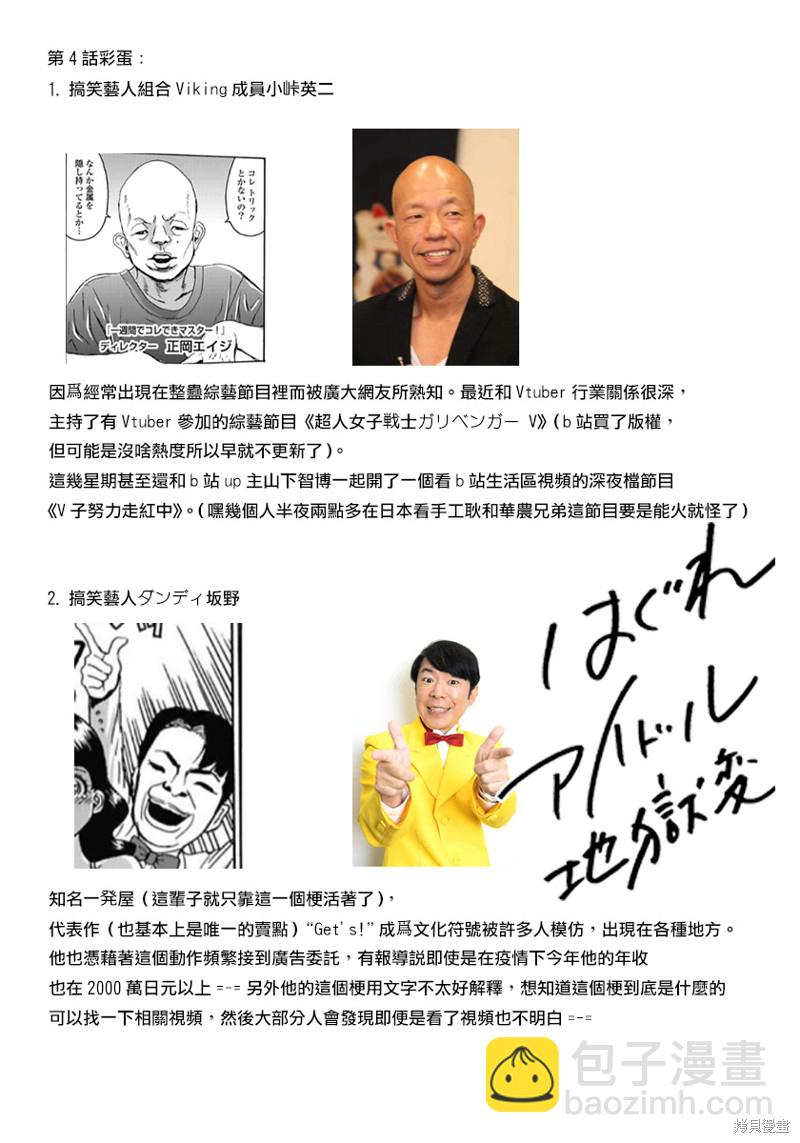 第4話彩蛋：
1. 搞笑藝人組合Viking成員小峠英二
コレトリック
とかないの？
なんか金属を
隠し持ってるとか…
「一週間でコレできマスター！」
ディレクター 正岡エイジ
因爲經常出現在整蠱綜藝節目裡而被廣大網友所熟知。最近和Vtuber行業關係很深，
主持了有Vtuber參加的綜藝節目《超人女子戦士ガリベンガー V》（b站買了版權，
但可能是沒啥熱度所以早就不更新了）。
這幾星期甚至還和b站up主山下智博一起開了一個看b站生活區視頻的深夜檔節目
《V子努力走紅中》。（嘿幾個人半夜兩點多在日本看手工耿和華農兄弟這節目要是能火就怪了）
2. 搞笑藝人ダンディ坂野
はぐれ
アイドル
地獄変
知名一発屋（這輩子就只靠這一個梗活著了），
代表作（也基本上是唯一的賣點）“Get's!”成爲文化符號被許多人模仿，出現在各種地方。
他也憑藉著這個動作頻繁接到廣告委託，有報導説即使是在疫情下今年他的年收
也在2000萬日元以上 =-= 另外他的這個梗用文字不太好解釋，想知道這個梗到底是什麼的
可以找一下相關視頻，然後大部分人會發現即便是看了視頻也不明白 =-=
包子漫畫
baozimh.com
拷貝漫畫